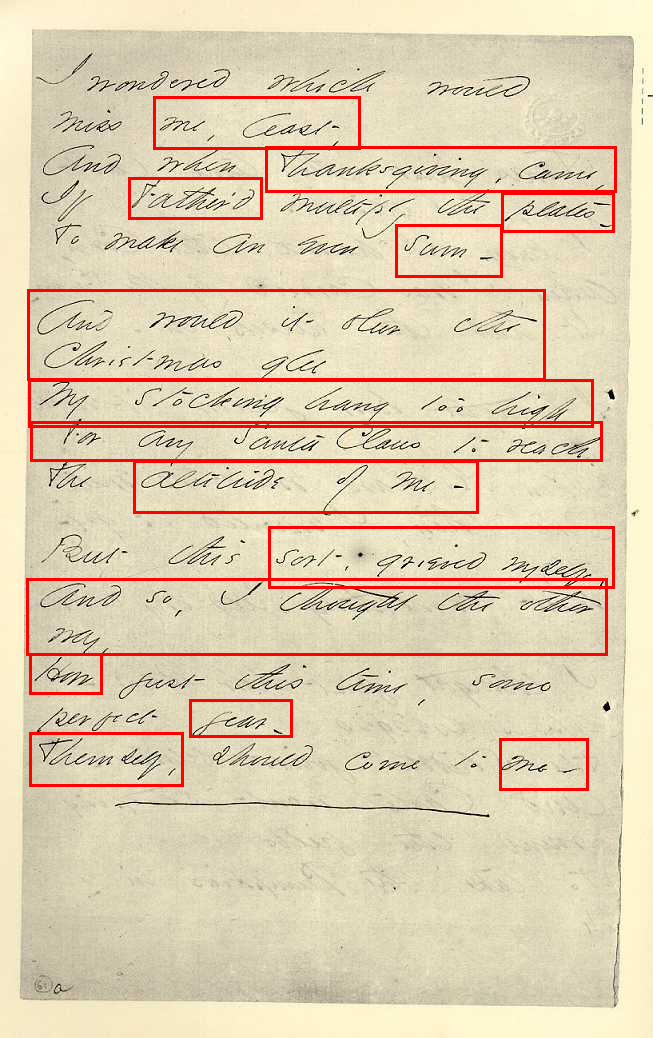 I wondered which would
miss me, least,
And when Thanksgiving, came,
If Father'd multiply the plates -
To make an even Sum -
And would it blur the
Christmas glee
My Stocking hang too high
For any Santa Claus to reach
The altitude of me -
But this sort, grieved myself,
And so, I thought the other
way,
How just this time, some
perfect year -
Themself, should come to me -
61 a